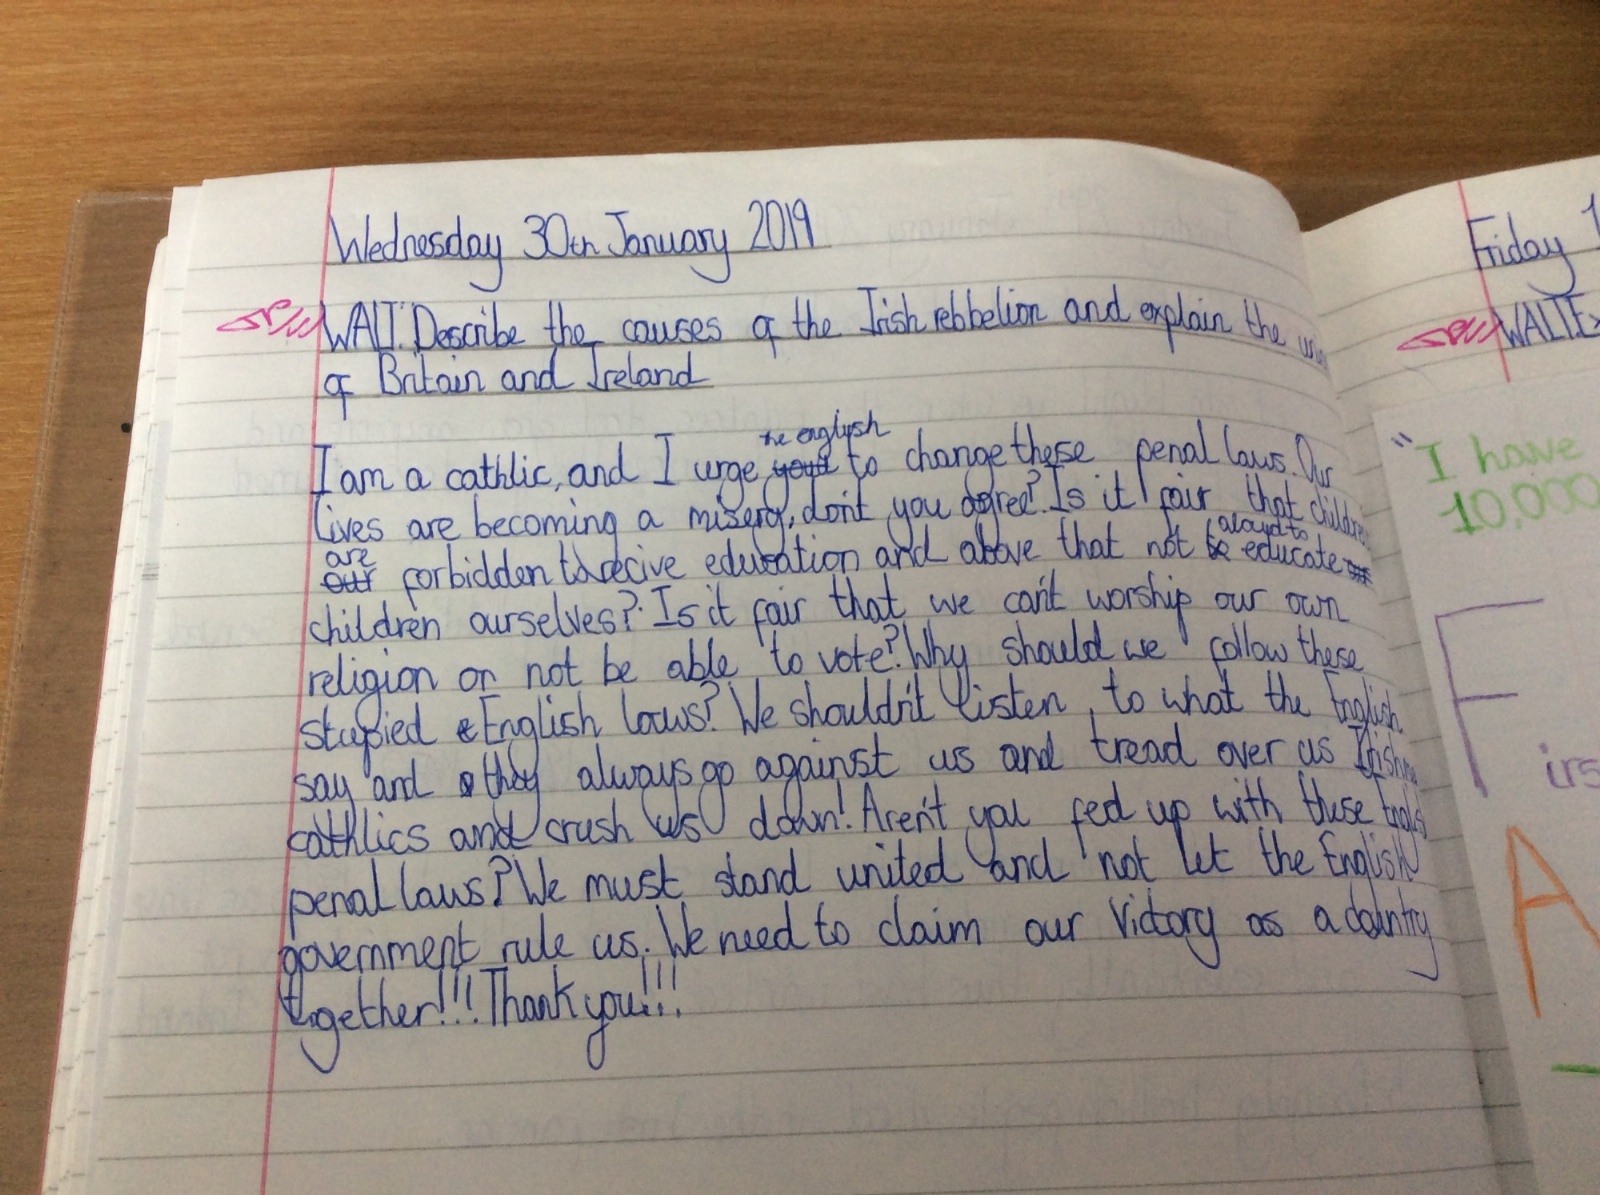 Wednesday 30th January 2019
WALT: Describe the causes of the Irish rebbelion and explain the
of Britain and Ireland
I am a cathlic, and I urge the english to change these penal laws. Our
lives are becoming a misery, don't you agree? Is it fair that children
are forbidden to recive education and above that not aloud to educate
children ourselves? Is it fair that we can't worship our own
religion or not be able to vote? Why should we follow these
stupied English laws? We shouldn't listen to what the English
say and they always go against us and tread over us Irish
cathlics and crush us down! Aren't you fed up with these
penal laws? We must stand united and not let the English
government rule us. We need to claim our Victory as a country
together!!! Thank you!!!
Friday
WALT:
"I have
10,000
First
A